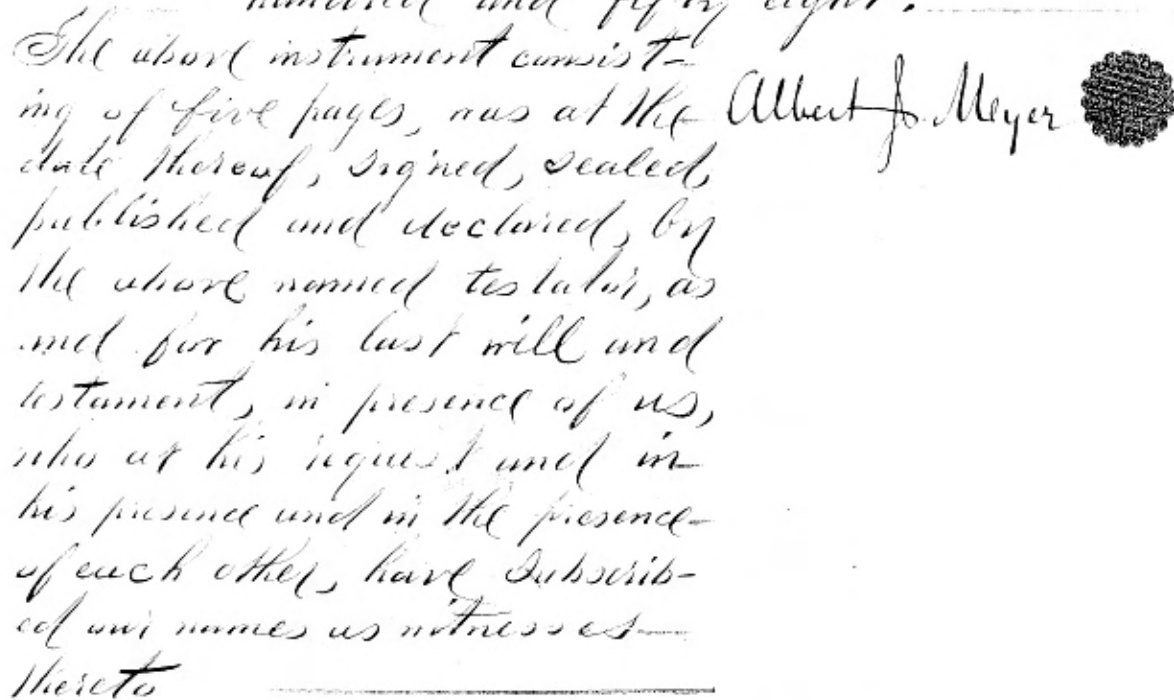 hundred and fifty eight.
The above instrument consist-
ing of five pages, was at the
Albert J. Meyer
date thereof, signed, sealed,
published and declared, by
the above named testator, as
and for his last will and
testament, in presence of us,
who at his request and in
his presence and in the presence
of each other, have subscrib-
ed our names as witnesses
thereto